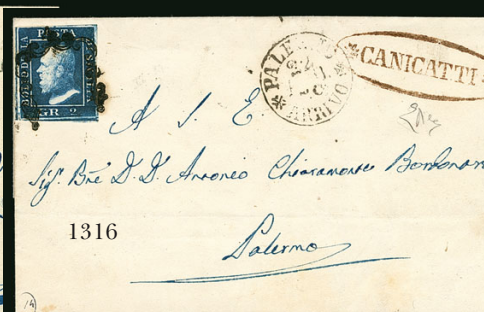 BOLLO DELLA POSTA DI SICILIA
GR. 2
PALERMO
ARRIVO
CANICATTI
A S. E.
Sig. Bne D. D. Antonio Chiaramonte Bordonaro
1316
Palermo
14